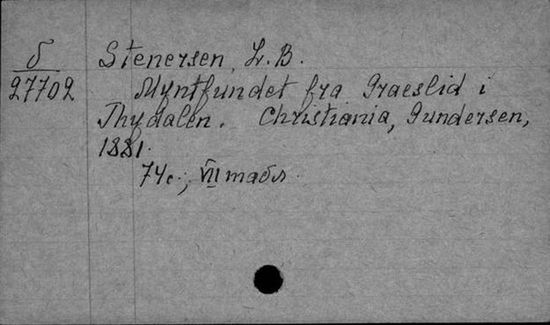 б
27702
Stenersen, L. B.
Myntfundet fra Graeslid i
Thydalen. Christiania, Gundersen,
1881.
74c., VII табл.